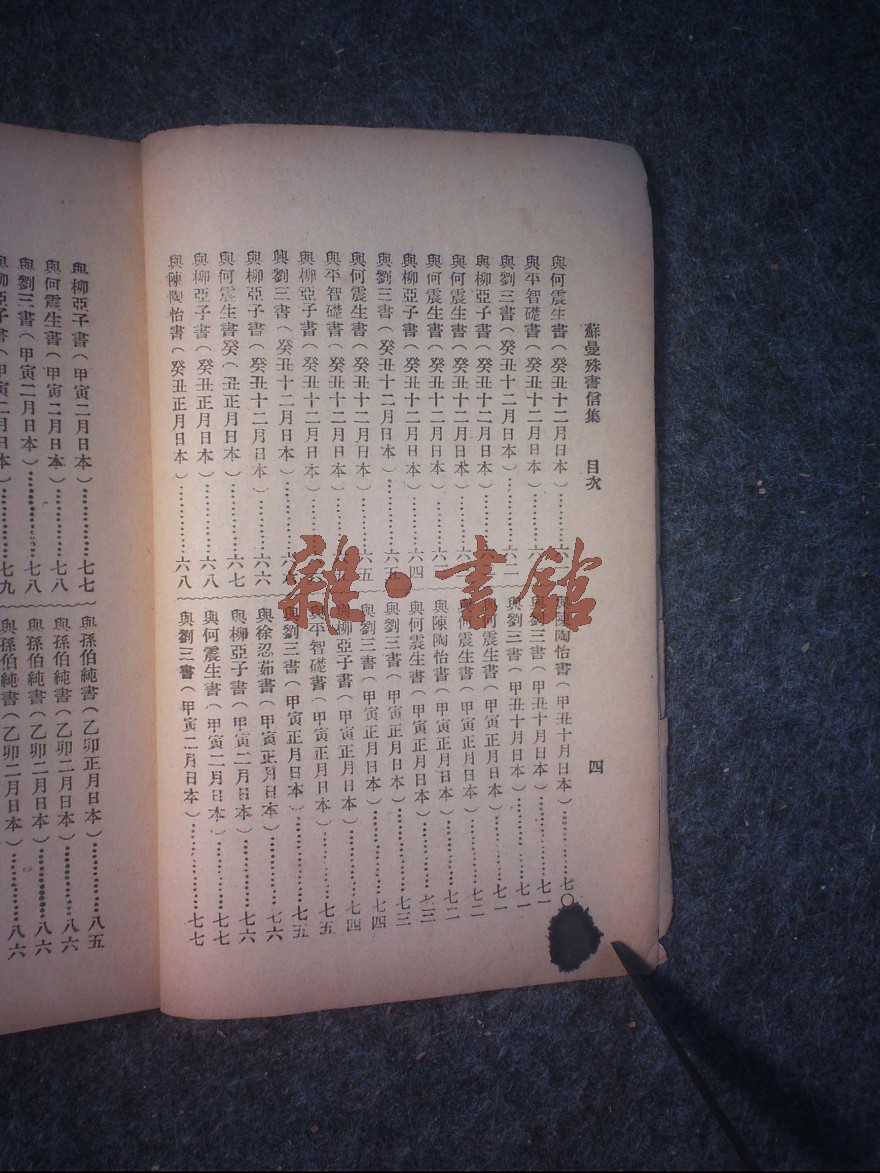 蘇曼殊書信集 目次 四
與何震生書(癸丑十二月日本)…………六
與平智礎書(癸丑十二月日本)…………六
與劉三書(癸丑十二月日本)…………六二
與柳亞子書(癸丑十二月日本)…………
與何震生書(癸丑十二月日本)…………六
與何震生書(癸丑十二月日本)…………六
與柳亞子書(癸丑十二月日本)…………六四
與劉三書(癸丑十二月日本)…………六五
與何震生書(癸丑十二月日本)…………六五
與平智礎書(癸丑十二月日本)…………
與柳亞子書(癸丑十二月日本)…………
與劉三書(癸丑十二月日本)…………六
與柳亞子書(癸丑十二月日本)…………六六
與何震生書癸(丑正月日本)…………六七
與柳亞子書(癸丑正月日本)…………六八
與陳陶怡書(癸丑正月日本)…………六八
與陳陶怡書(甲丑十月日本)…………七〇
與劉三書(甲丑十月日本)…………七一
與劉三書(甲丑十月日本)…………七一
與何震生書(甲寅正月日本)…………七一
與何震生書(甲寅正月日本)…………七二
與陳陶怡書(甲寅正月日本)…………七二
與何震生書(甲寅正月日本)…………七三
與劉三書(甲寅正月日本)…………七三
與劉三書(甲寅正月日本)…………七四
與柳亞子書(甲寅正月日本)…………七四
與平智礎書(甲寅正月日本)…………七五
與劉三書(甲寅正月日本)…………七五
與徐忍茹書(甲寅正月日本)…………七六
與柳亞子書(甲寅二月日本)…………七六
與何震生書(甲寅二月日本)…………七七
與劉三書(甲寅二月日本)…………七七
與柳亞子書(甲寅二月日本)…………七七
與何震生書(甲寅二月日本)…………七八
與劉三書(甲寅二月日本)…………七八
與柳亞子書(甲寅二月日本)…………七九
與孫伯純書(乙卯正月日本)…………八五
與孫伯純書(乙卯二月日本)…………八六
與孫伯純書(乙卯二月日本)…………八六
與孫伯純書(乙卯二月日本)…………八六
雜·書館